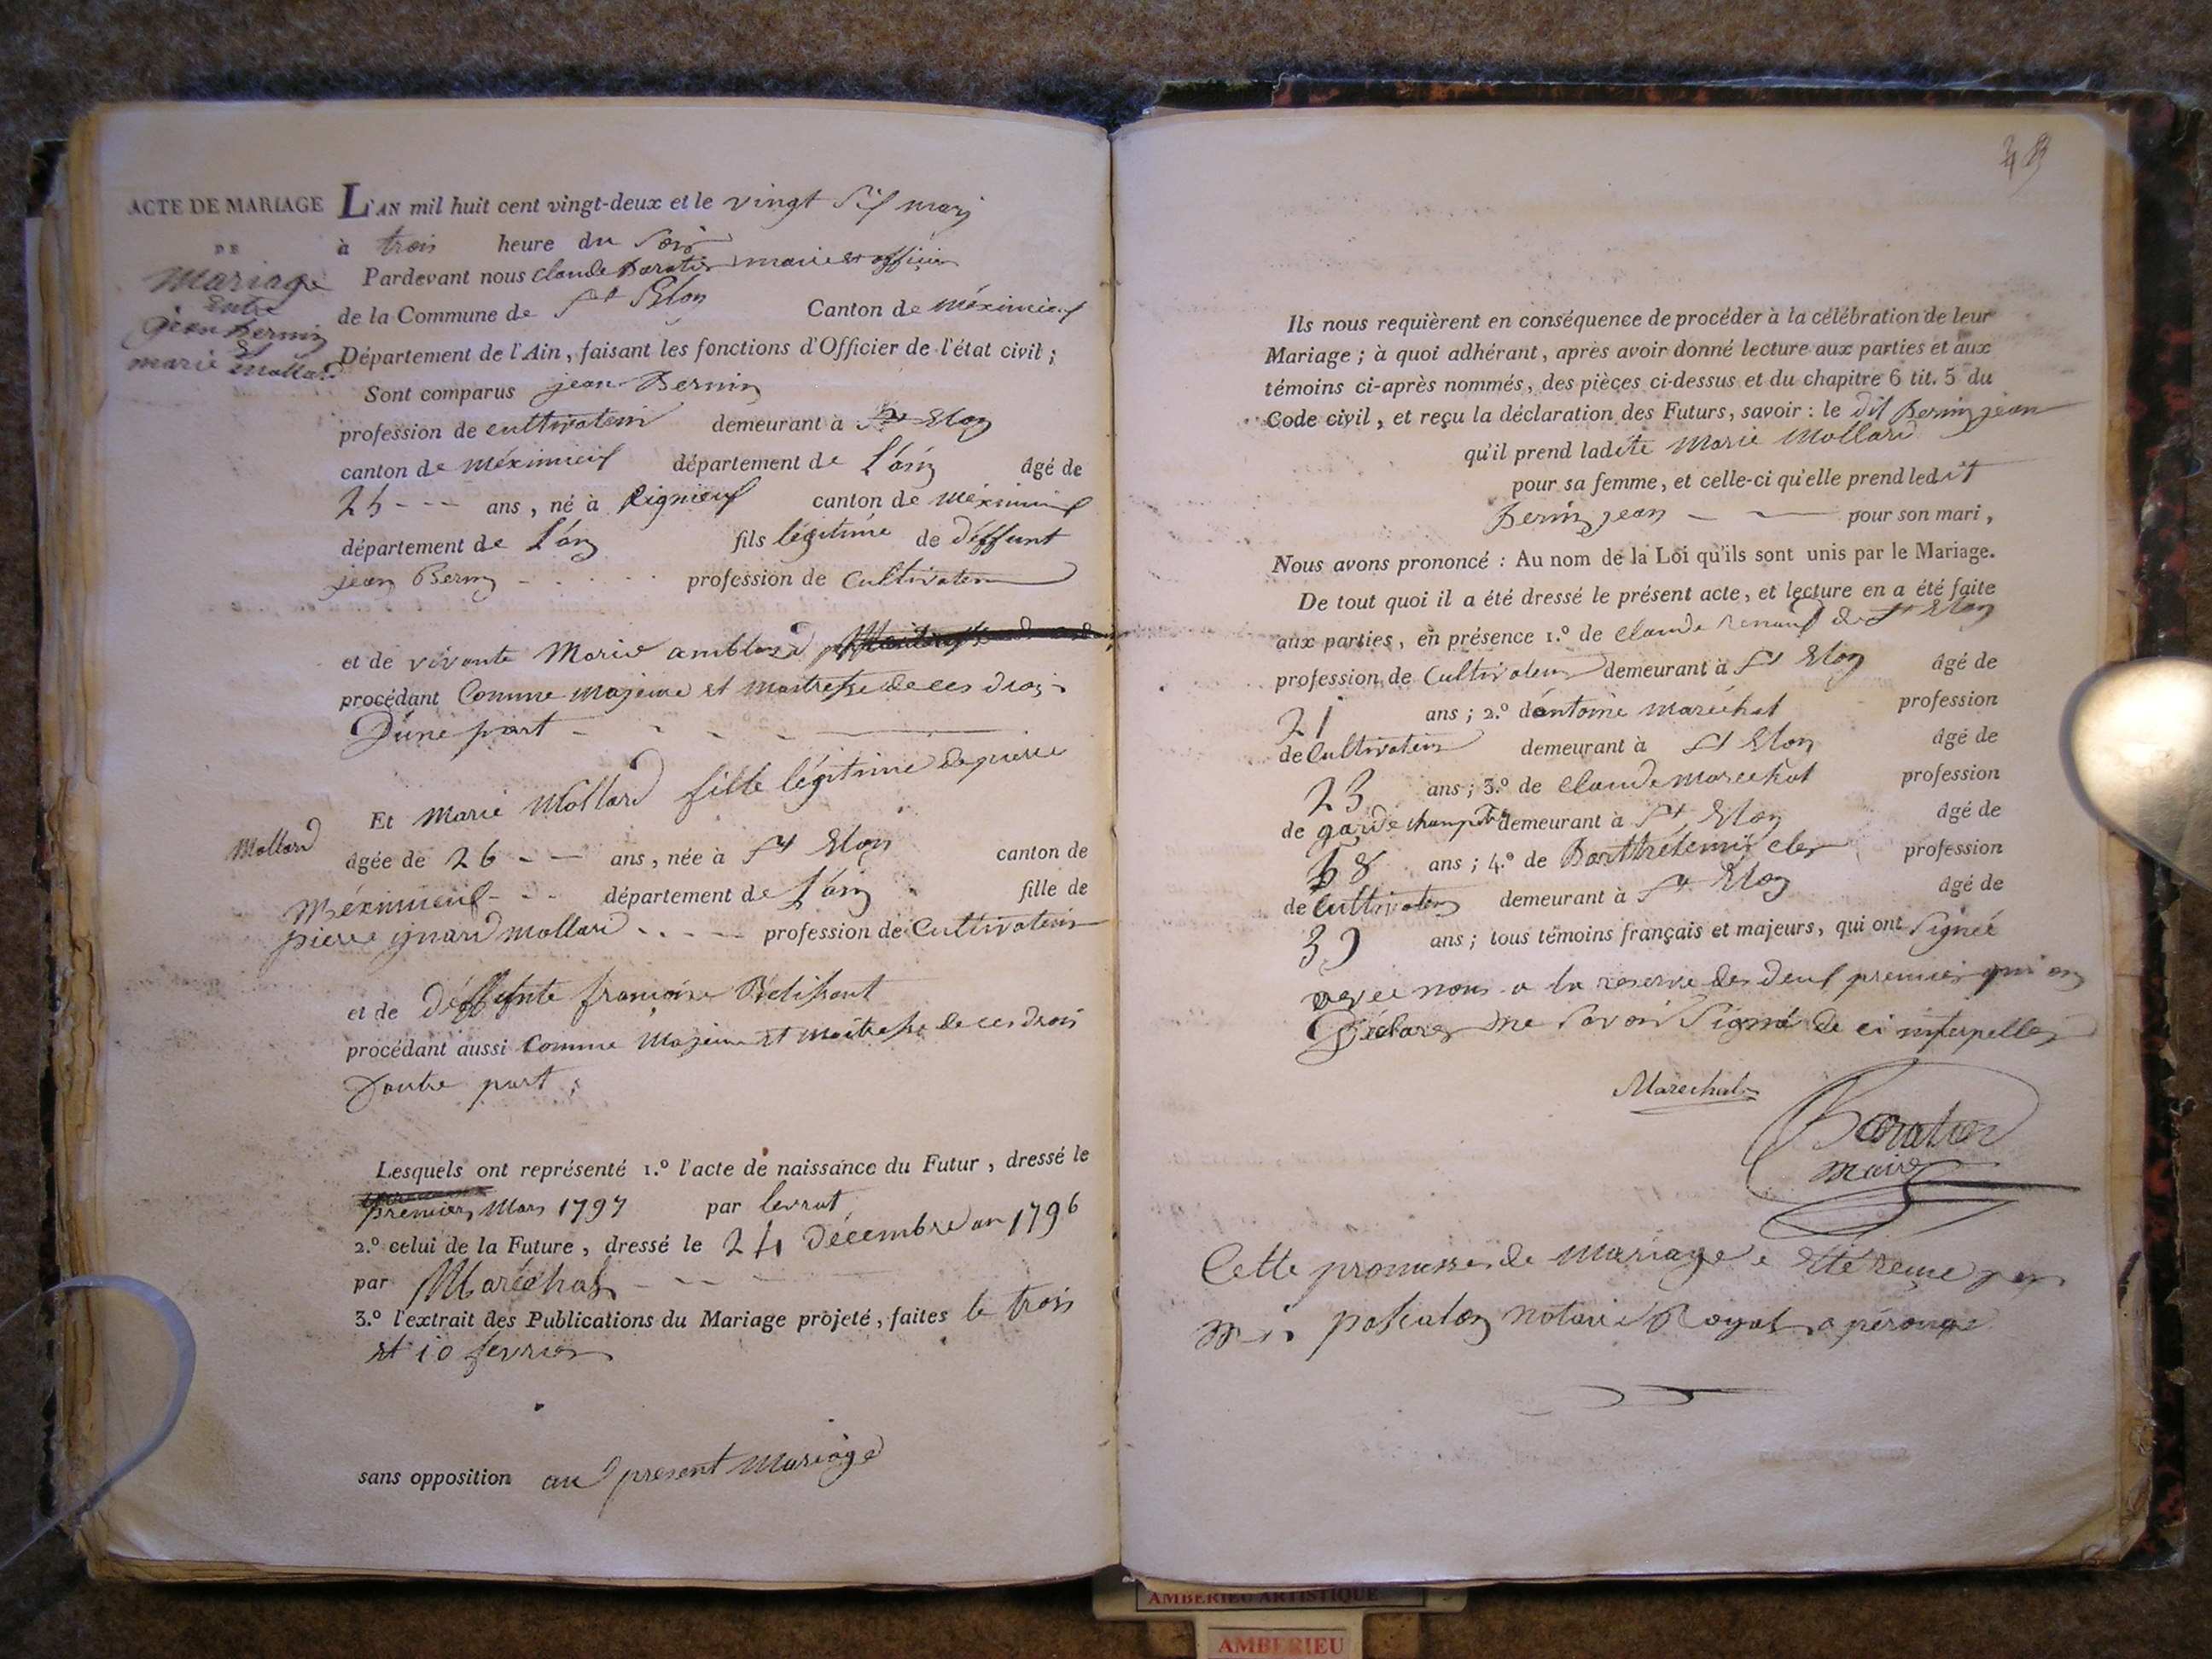 ACTE DE MARIAGE
DE
Mariage
Entre
jean Bernin
Et
marie Mollard
L'AN mil huit cent vingt-deux et le vingt Six mars
à trois heure du Soir
Pardevant nous claude Baratier maire et officier
de la Commune de St Eloy Canton de méximieux
Département de l'Ain, faisant les fonctions d'Officier de l'état civil;
Sont comparus jean Bernin
profession de cultivateur demeurant à St Eloy
canton de méximieux département de L'ain âgé de
25 - - - ans, né à Rignieux canton de méximieux
département de L'ain fils légitime de déffunt
jean Bernin - . . . . . profession de Cultivateur
et de vivante Marie amblard
procédant Comme majeure et maitresse de ces drois
D'une part - - - -
Et Marie Mollard fille légitime de pierre
Mollard
âgée de 26 - - ans, née à St Eloy canton de
Méximieux - - . département de L'ain fille de
pierre ynard mollard . . . - - profession de Cultivateur
et de Déffunte francoise
procédant aussi Comme Majeure et maitresse de ces drois
Dautre part;
Lesquels ont représenté 1.º l'acte de naissance du Futur, dressé le
premier Mars 1797 par levrat
2.º celui de la Future, dressé le 24 Décembre an 1796
par Maréchal - - -
3.º l'extrait des Publications du Mariage projeté, faites le trois
et 10 fevrier
sans opposition au present Mariage
Ils nous requièrent en conséquence de procéder à la célébration de leur
Mariage; à quoi adhérant, après avoir donné lecture aux parties et aux
témoins ci-après nommés, des pièces ci-dessus et du chapitre 6 tit. 5 du
Code civil, et reçu la déclaration des Futurs, savoir: le dit Bernin jean
qu'il prend ladite Marie Mollard
pour sa femme, et celle-ci qu'elle prend ledit
Bernin jean - - pour son mari,
Nous avons prononcé: Au nom de la Loi qu'ils sont unis par le Mariage.
De tout quoi il a été dressé le présent acte, et lecture en a été faite
aux parties, en présence 1.º de claude renaud de St Eloy
profession de Cultivateur demeurant à St Eloy âgé de
21 ans; 2.º dántoine maréchal profession
de Cultivateur demeurant à St Eloy âgé de
23 ans; 3.º de Claude Marechal profession
de garde champetre demeurant à St Eloy âgé de
68 ans; 4.º de Barthelemi profession
de Cultivateur demeurant à St Eloy âgé de
39 ans; tous témoins français et majeurs, qui ont Signée
avec nous a la reserve des deux premier qui on
Déclarer ne Savoir Signé de ci interpeller
Marechal
Baratier
maire
Cette promesse de Mariage e été reçue par
notaire Royal a pérouge
AMBERIEU ARTISTIQUE
AMBERIEU